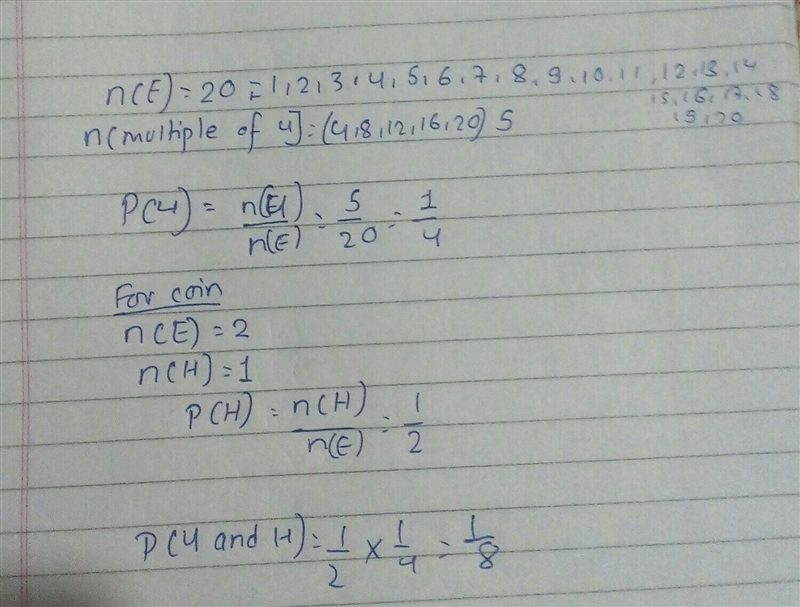 n(E) = 20 = 1, 2, 3, 4, 5, 6, 7, 8, 9, 10, 11, 12, 13, 14
15, 16, 17, 18
19, 20
n(multiple of 4] = (4,8,12,16,20) 5
P(4) = n(E1)/n(E) = 5/20 = 1/4
For coin
n(E) = 2
n(H) = 1
P(H) = n(H)/n(E) = 1/2
P(4 and H) = 1/2 × 1/4 = 1/8